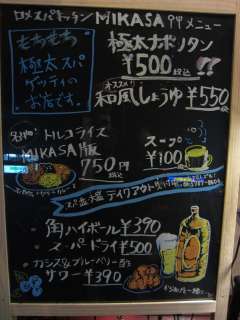 ロメスパキッチン MIKASA メニュー
もちもち
極太スパ
ゲッティの
お店です。
極太ナポリタン
¥500 税込 !!
オススメ!!
和風しょうゆ ¥550
トルコライス
MIKASA版
750円
税込
スープ
¥100
テイクアウト
・角ハイボール ¥390
・スーパードライ ¥500
・カシス&ブルーベリー酢
サワー ¥390